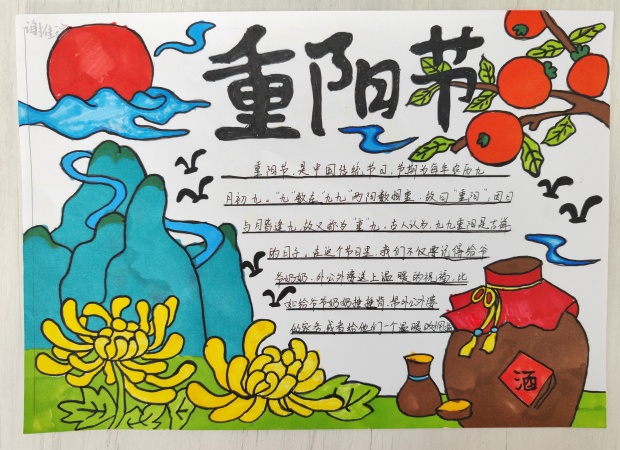 重阳节
重阳节，是中国传统节日，节期为每年农历九
月初九。"九"数在"九九"两阳数相重，故曰"重阳"；因日
与月皆逢九，故又称为"重九"。古人认为，九九重阳是吉祥
的日子，在这个节日里，我们不仅要记得给爷
爷奶奶、外公外婆送上温暖的祝福，比
如给爷爷奶奶捶捶背，帮外公外婆
做家务或者给他们一个温暖的拥
酒